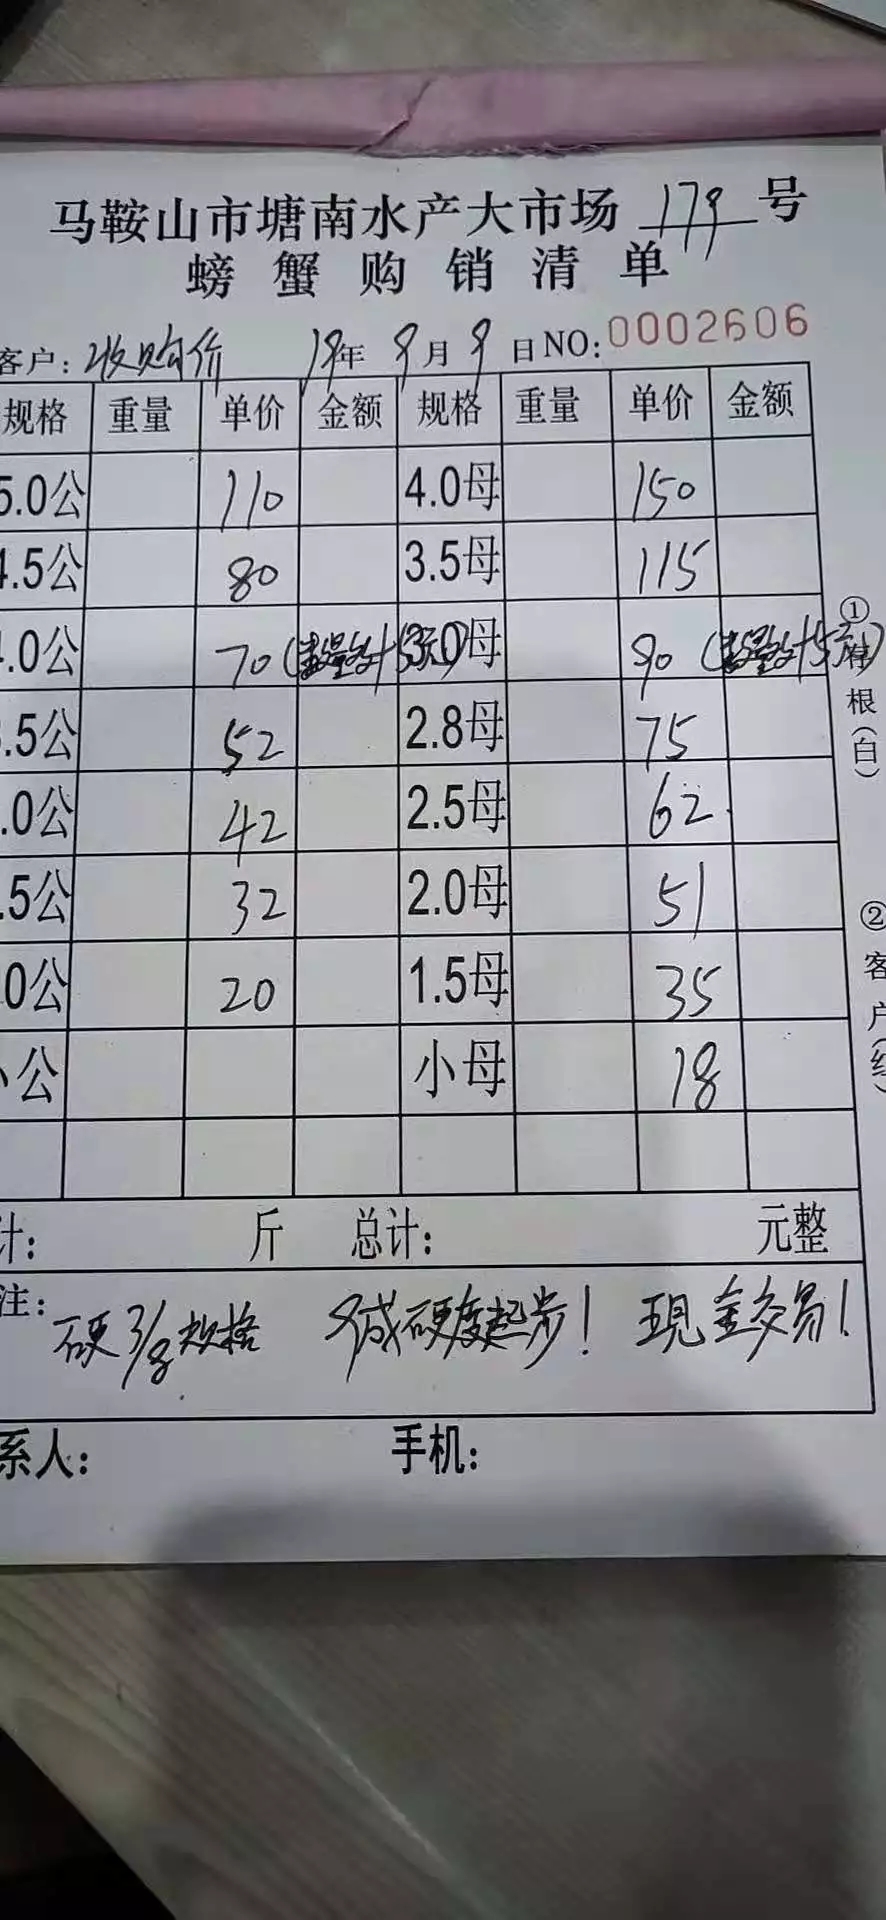 马鞍山市塘南水产大市场 179 号
螃蟹购销清单
客户: 收购价 19年 9月 9日 NO: 0002606
规格 重量 单价 金额 规格 重量 单价 金额
5.0公 110 4.0母 150
4.5公 80 3.5母 115
.0公 70 3.0母 90
.5公 52 2.8母 75
.0公 42 2.5母 62
.5公 32 2.0母 51
0公 20 1.5母 35
小公 小母 18
计: 斤 总计: 元整
注: 硬 3/8 规格 9成硬度起步! 现金交易!
系人: 手机:
①存根(白)
②客户(红)